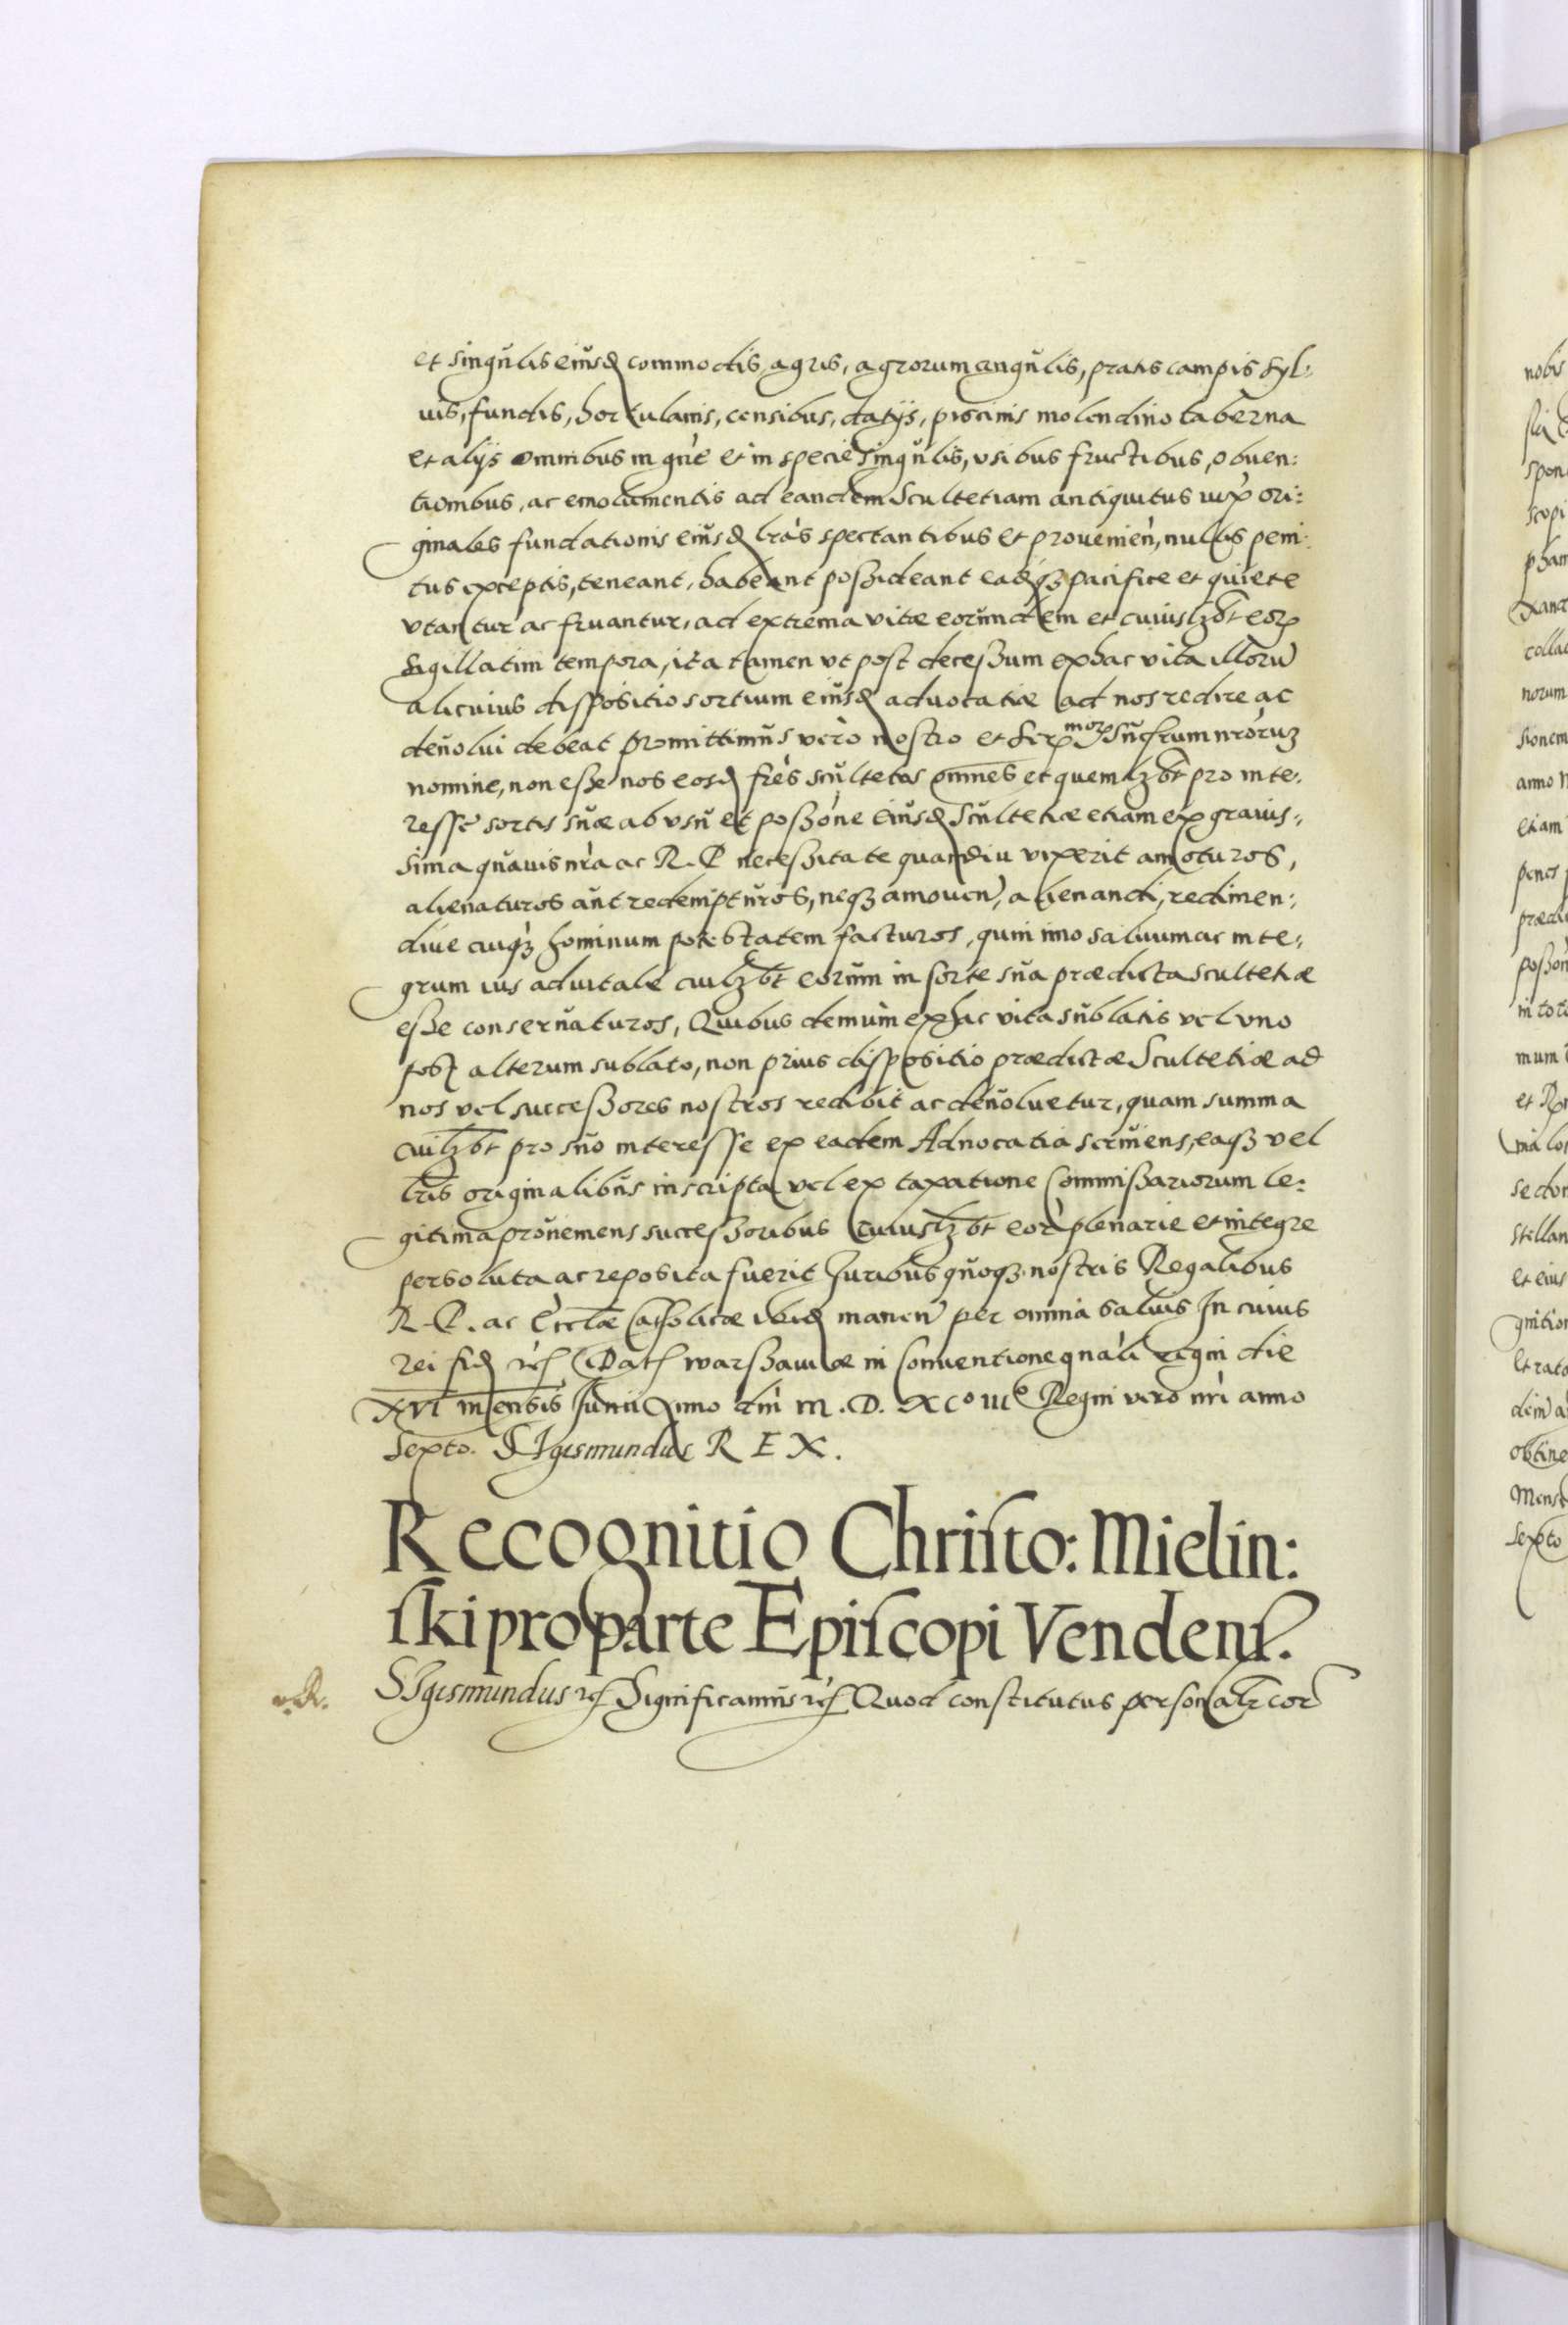 et singulis eiusd commodis agris, agrorum angulis, pratis campis syl:
uis, fundis, hortulanis, censibus, datijs, piscinis molendino taberna
et alijs omnibus in gnre et in specie singulis, vsibus fructibus, obuen:
tionibus, ac emolumentis ad eandem Scultetiam antiquitus iuxa ori:
ginales fundationis eiusd lras spectantibus et prouenien, nullis peni:
tus exceptis, teneant, habeant possideant eadqз pacifice et quiete
vtantur ac fruantur, ad extrema vitæ eorundem et cuiuslzbt eor
sigillatim tempora, ita tamen vt post decessum ex hac vita illoru
alicuius dispositio sortium eiusd aduocatiæ ad nos redire ac
deuolui debeat promittimus vero nostro et Ser mor sucrum nroruz
nomine, non esse nos eosd fres scultetos omnes et quemlzbt pro inte:
resse sortis suæ ab vsu et possone eiusd Scultetiæ etiam ex grauis:
sima quauis nra ac R.P. necessitate quamdiu vixerit amoturos,
alienaturos aut redempturos, neqз amouen, alienandi, redimen:
diue cuiqз hominum potestatem facturos, quin imo saluum ac inte:
grum ius aduitale cuilzbt eorum in sorte sua prædicta scultetiæ
esse conseruaturos, Quibus demum ex hac vita sublatis vel vno
post alterum sublato, non prius dispositio prædictæ Scultetiæ ad
nos vel successores nostros redibit ac deuoluetur, quam summa
cuilzbt pro suo interesse ex eadem Aduocatia seruiens, eaqз vel
lris originalibus inscripta vel ex taxatione Commissariorum le:
gitima proueniens successoribus cuiuslzbt eor plenarie et integre
persoluta ac reposita fuerit Iuribus quoqз nostris Regalibus
R.P. ac Eccłæ Catholicæ ibid manen per omnia saluis In cuius
rei fid etc Dat warssauiæ in Conuentione gnali regni die
XVI mensis Iunii Anno dni M.D.XCo IIIo Regni vero nri anno
Sexto. SIgismundus REX.
Recognitio Christo: Mielin:
ski pro parte Episcopi Vendens.
R. SIgismundus etc Significamus etc Quod constitutus personalr cor